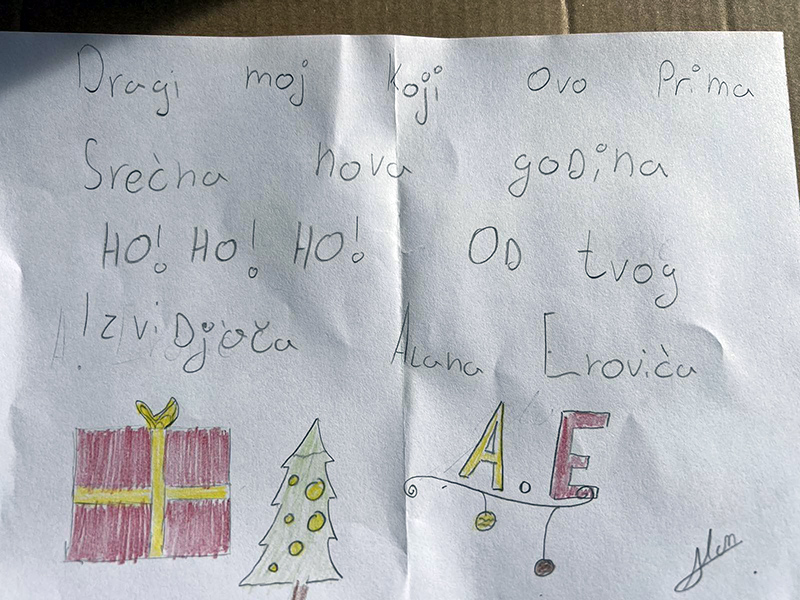 Dragi moj koji ovo prima
Srećna nova godina
HO! HO! HO! OD tvog
Izviđjača Alana Erovića
A.E
Alen